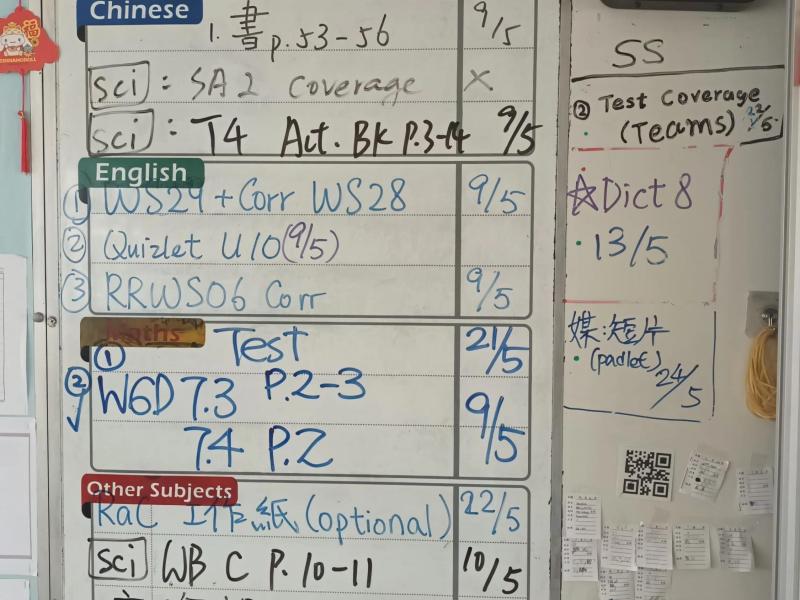 Chinese
1. 書 p.53-56 9/5
sci : SA2 Coverage ×
sci : T4 Act. BK P.3-14 9/5
English
① WS29 + Corr WS28 9/5
② Quizlet U10 (9/5)
③ RRWS06 Corr 9/5
Maths
① Test 21/5
② W6D 7.3 P.2-3 9/5
7.4 P.2
Other Subjects
RaC 工作紙 (optional) 22/5
sci WB C P.10-11 10/5
SS
② Test Coverage
(Teams) 22/5
☆ Dict 8
13/5
媒:短片
(padlet) 24/5